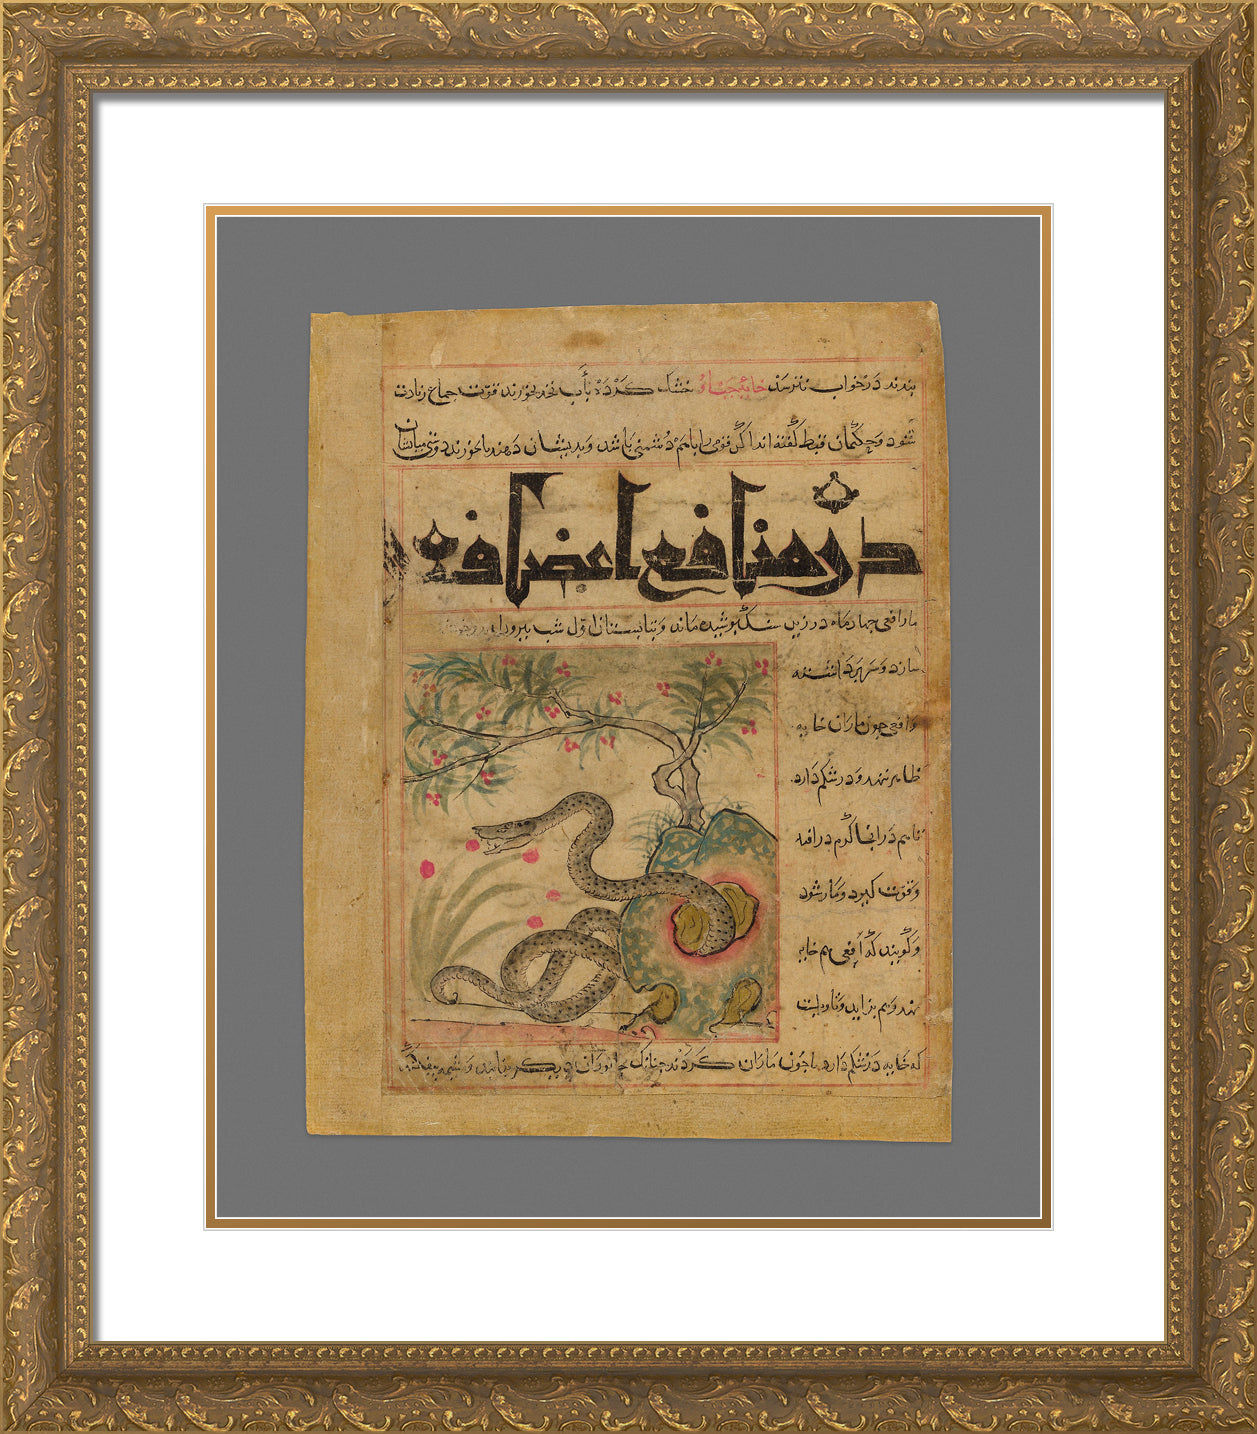 بندند در خواب نترسد خایه خشک کرده بآب نخود بخورند قوت جماع زیادت
شود و حکیمان قبط گفته اند اگر قومی را باهم دشمنی باشد و بدیشان دهند تا بخورند دوستی میانشان
در منافع اعضا افعی
مار افعی چهار ماه در زیر سنگ پوشیده ماند و تابستان اول شب بیرون
سازد و سر برداشته
و افعی چون ماران خایه
ظاهر ننهد و در شکم دارد
تا هم در انجا گرم در افتد
و قوت گیرد و مار شود
و گویند که افعی هم خایه
نهد و هم بزاید و تاویلست
که خایه در شکم دارد چون ماران کردند چنانک جانوران دیگر